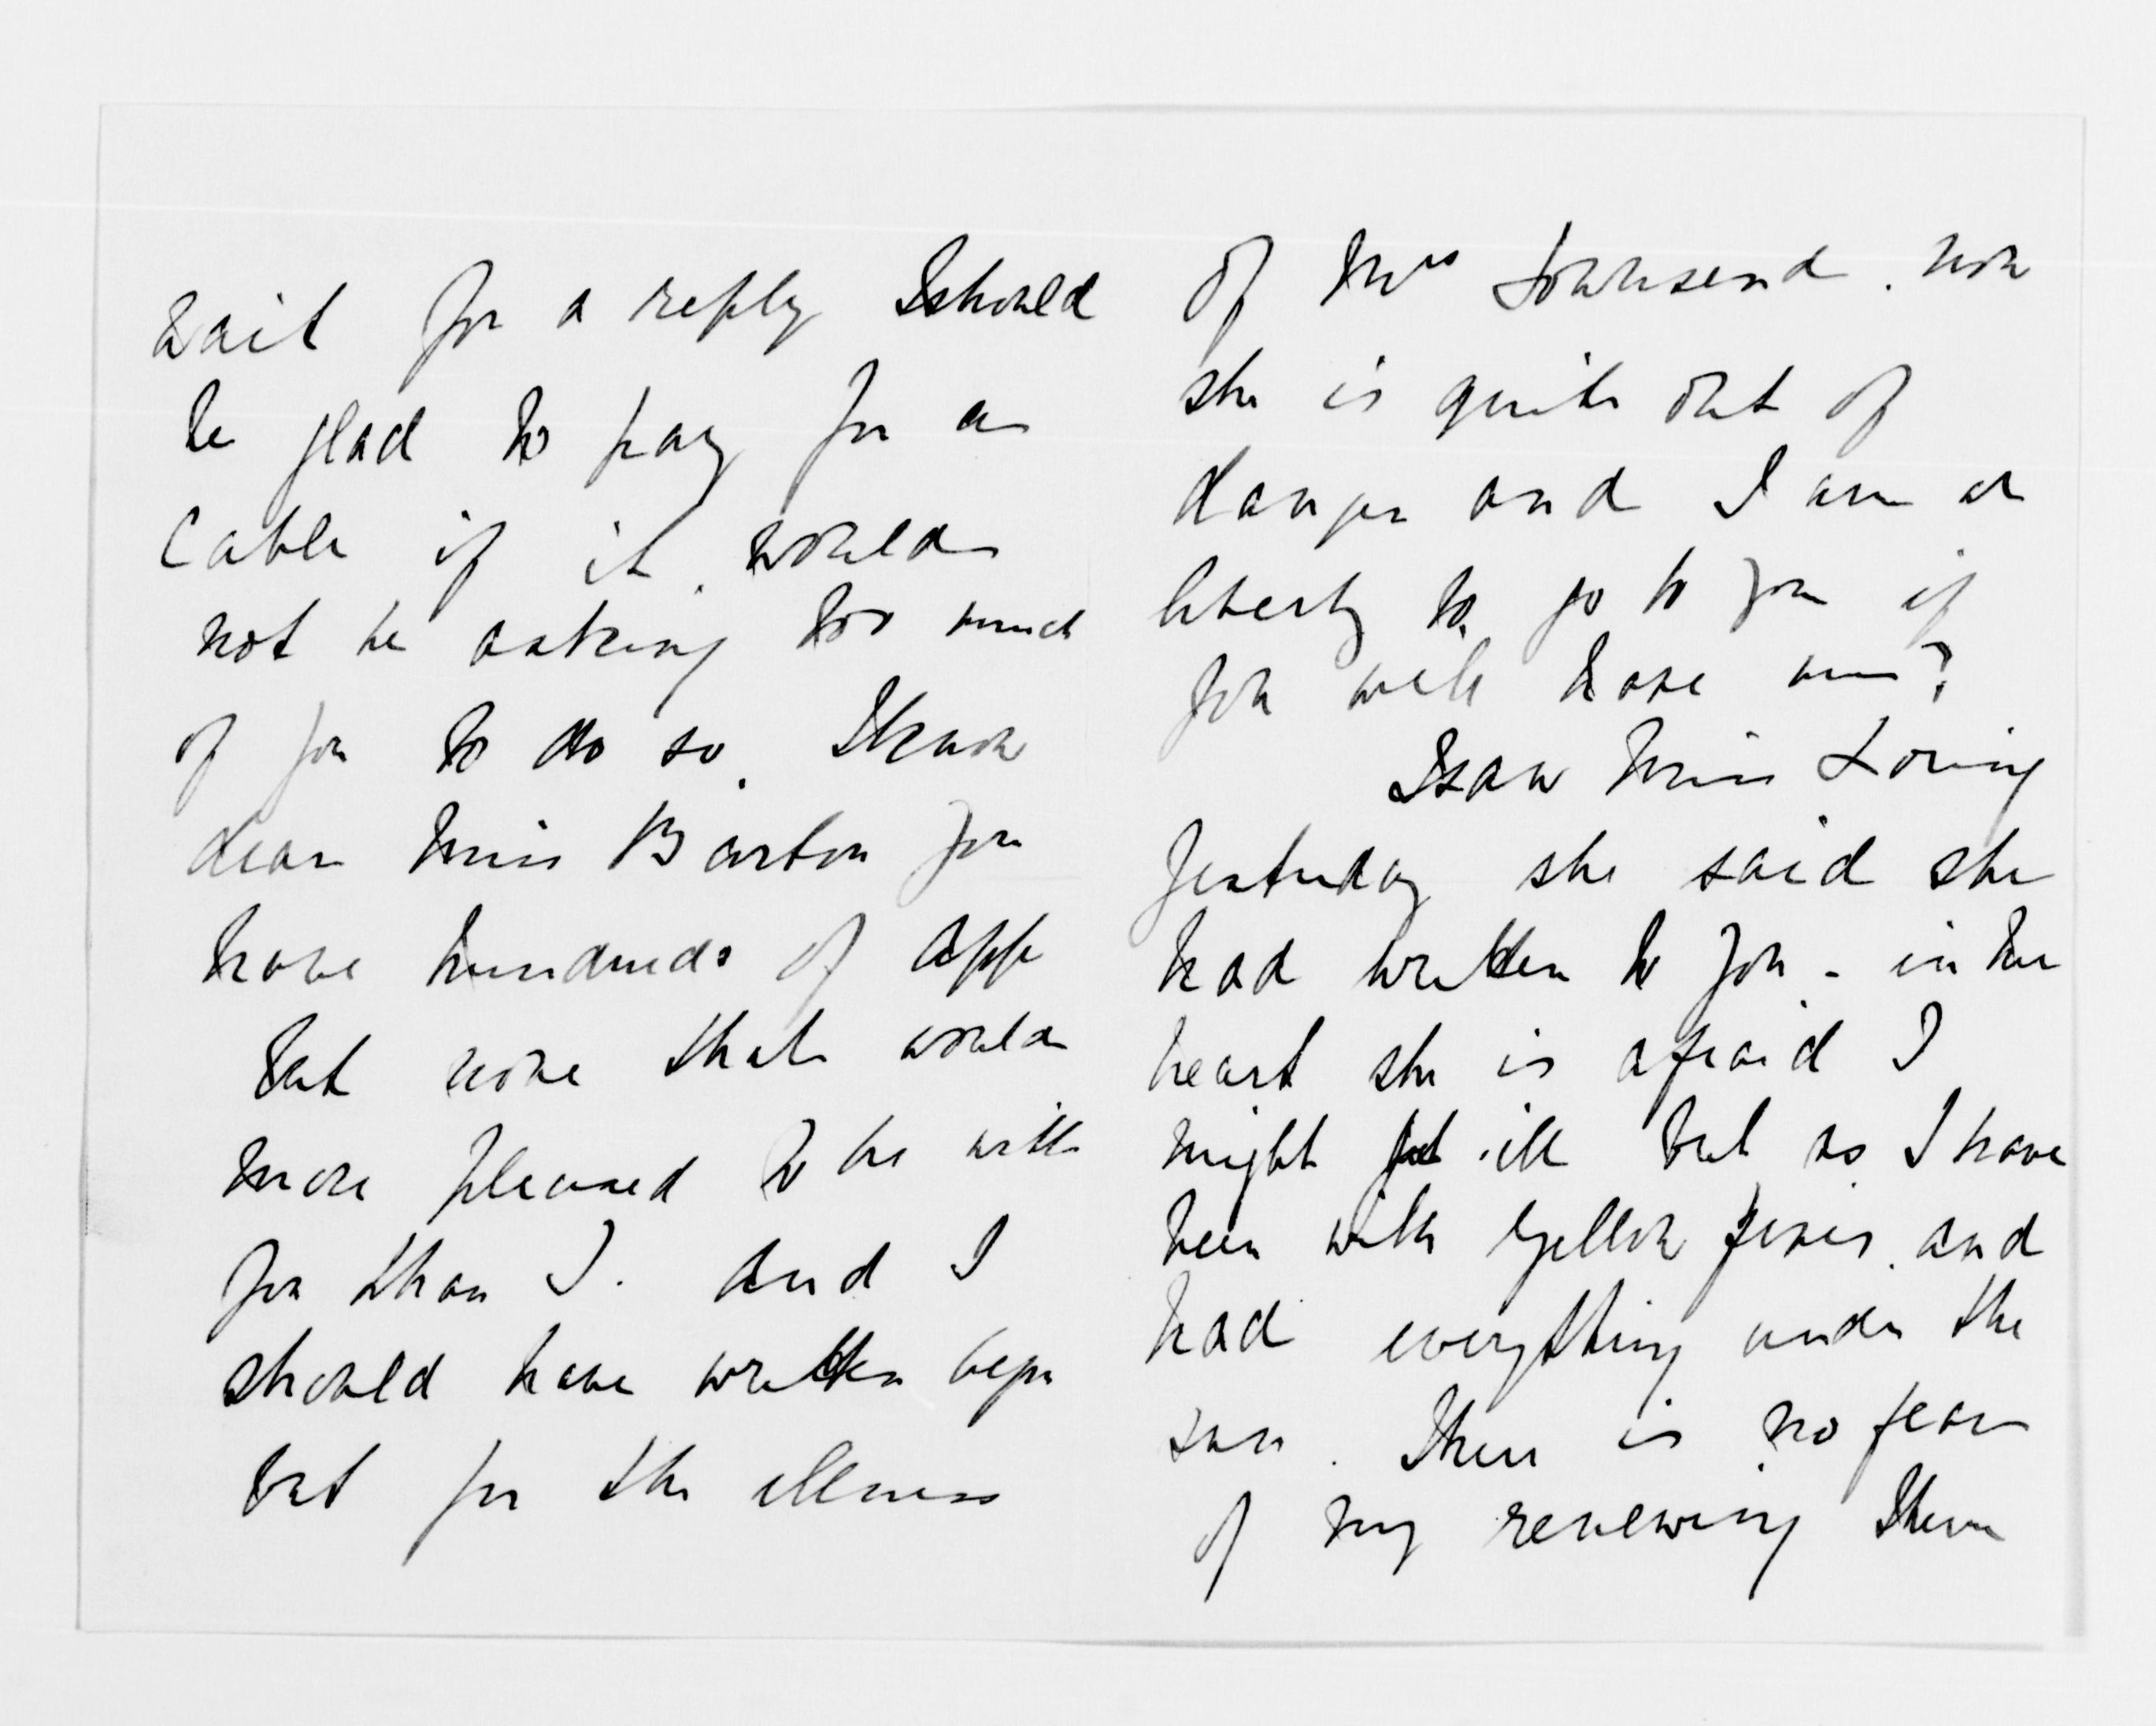 wait for a reply I should
be glad to pay for a
Cable if it would
not be asking too much
of you to do so. I know
dear Miss Barton you
have hundreds of app
but none that would
more pleased to be with
you than I. And I
should have written befor
but for the illness
of Mrs Townsend. now
she is quite out of
danger and I am at
liberty to go to you if
you will have me?
I saw Miss Loring
yesterday she said she
had written to you - in her
heart she is afraid I
might get ill but as I have
been with Yellow fever and
had everything under the
sun. There is no fear
of my renewing them